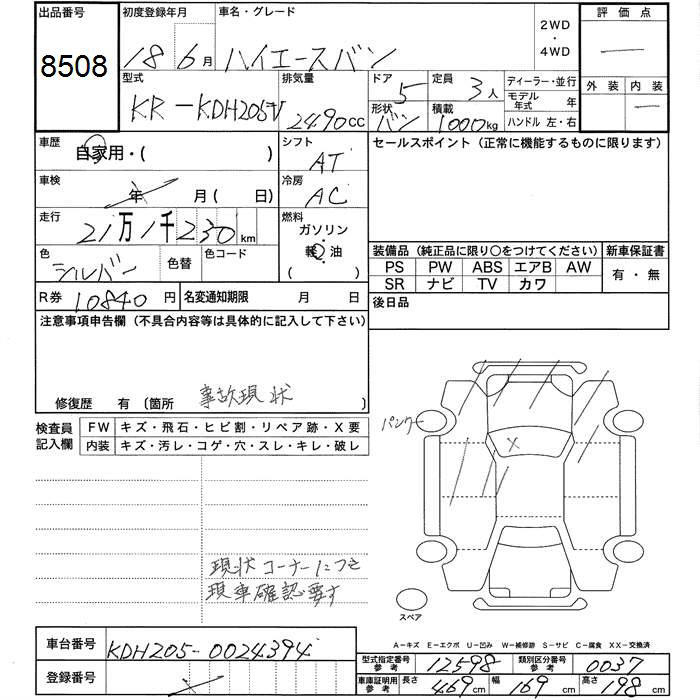 出品番号 初度登録年月 車名・グレード 2WD・4WD 評価点
8508 18 6月 ハイエースバン
型式 排気量 ドア 定員 ディーラー・並行 外装 内装
KR-KDH205V 2490cc 5 3人 モデル年式 年
形状 積載 ハンドル 左・右
バン 1000kg
車歴 自家用・( ) シフト AT セールスポイント(正常に機能するものに限ります)
車検 年 月(日) 冷房 AC
走行 21万1千230km 燃料 ガソリン
軽油
( )
色 シルバー 色替 色コード
装備品(純正品に限り〇をつけてください) 新車保証書
PS PW ABS エアB AW 有・無
SR ナビ TV カワ
R券 10840円 名変通知期限 月 日 後日品
注意事項申告欄(不具合内容等は具体的に記入して下さい)
修復歴 有 〔箇所 事故現状
検査員記入欄 FW キズ・飛石・ヒビ割・リペア跡・X要
内装 キズ・汚レ・コゲ・穴・スレ・キレ・破レ
パンク
X
現状コーナーにつき
現車確認要す
スペア
A-キズ E-エクボ U-凹み W-補修跡 S-サビ C-腐食 XX-交換済
車台番号 KDH205-0024394
型式指定番号参考 12598 類別区分番号参考 0037
登録番号
車庫証明用参考 長さ 469cm 幅 169cm 高さ 198cm